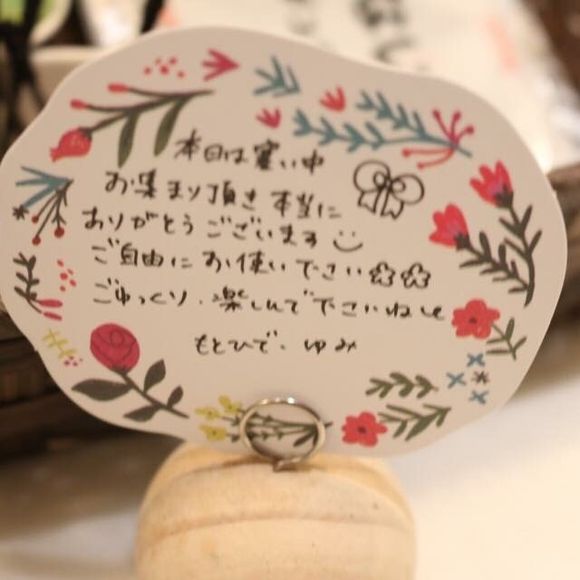 本日は寒い中
お集まり頂き本当に
ありがとうございます
ご自由にお使い下さい☆☆
ごゆっくり、楽しんで下さいね
もとひで・ゆみ